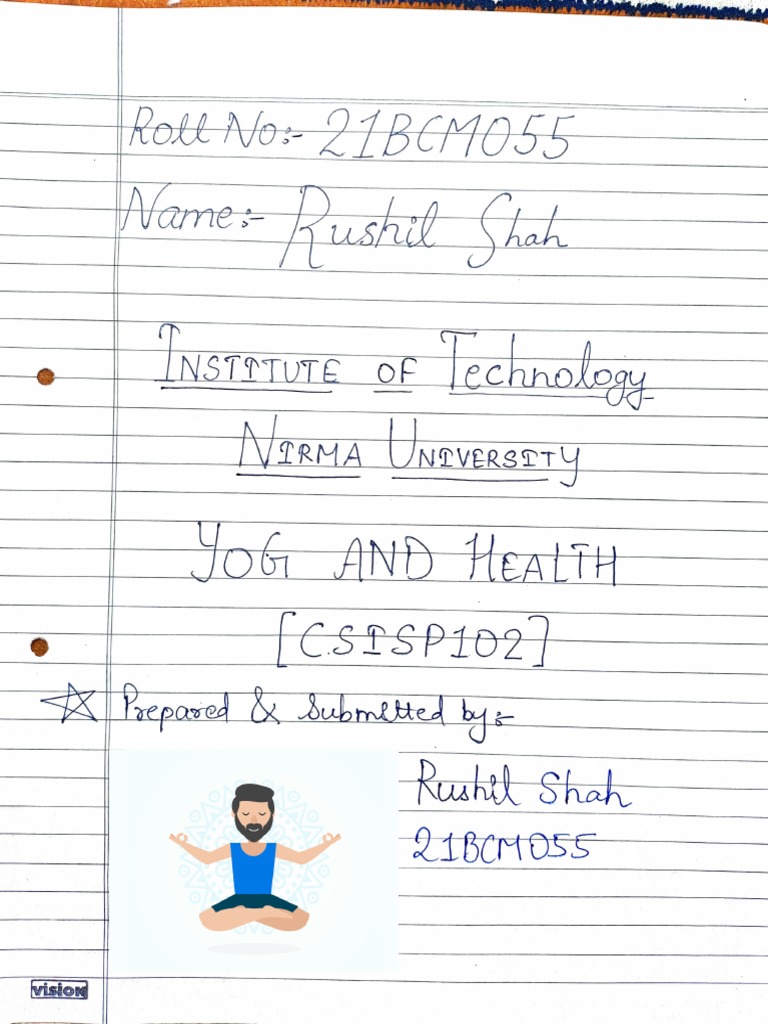 Roll No:- 21BCM055
Name:- Rushil Shah
INSTITUTE OF Technology
NIRMA UNIVERSITY
YOG AND HEALTH
[CSISP102]
Prepared & Submitted by:-
Rushil Shah
21BCM055
vision